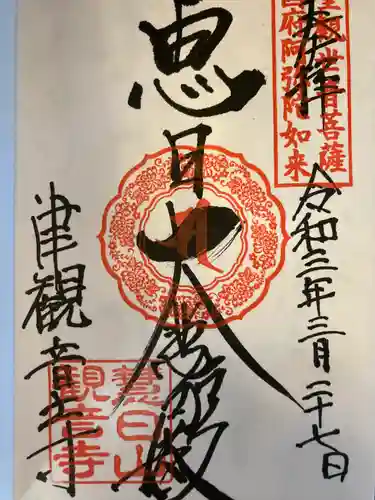 奉拝
聖観世音菩薩
国府阿弥陀如来
令和三年三月二十七日
恵日山
大宝殿
津観音寺
慧日山
観音寺